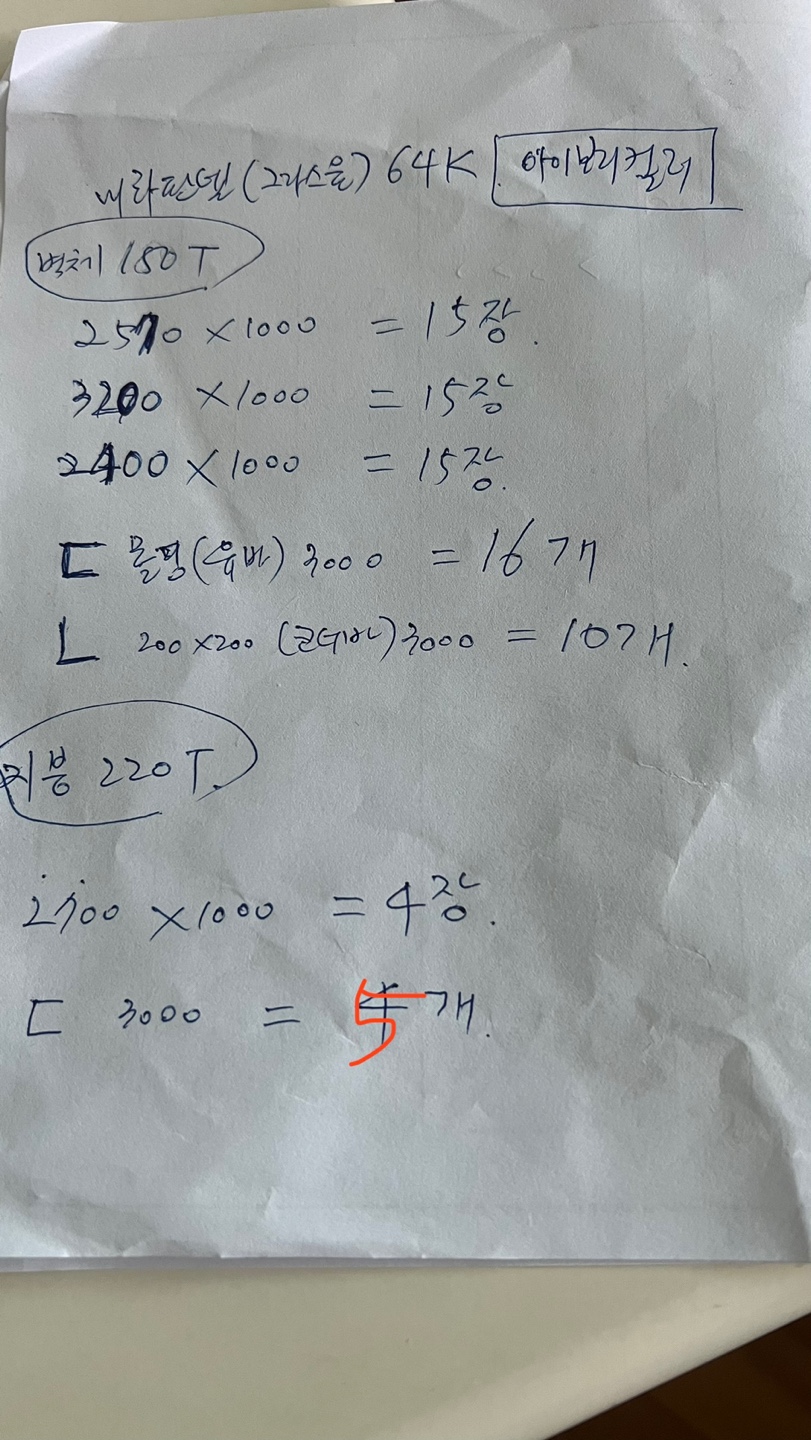 (그라스울) 64K 아이보리컬러
벽체 150T
2570 × 1000 = 15장.
3200 × 1000 = 15장
2400 × 1000 = 15장.
ㄷ 몰딩(유바) 3000 = 16개
ㄴ 200×200 (코너바) 3000 = 10개.
지붕 220T.
× 1000 = 4장.
ㄷ 3000 = 5개.